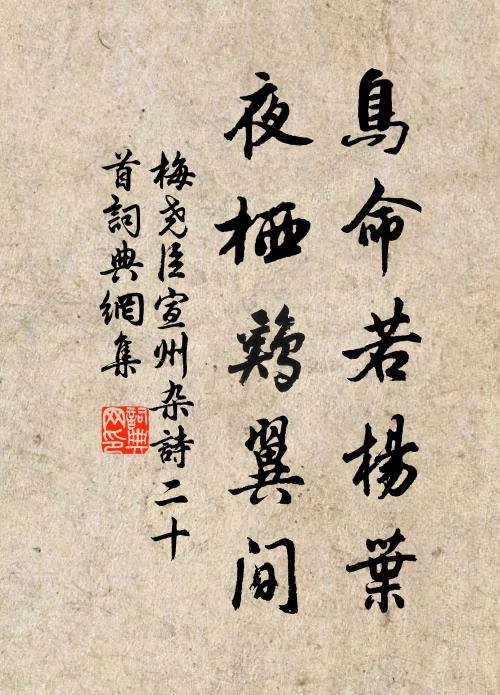 鳥命若楊葉
夜栖鷄翼間
梅尧臣宣州杂詩二十
首詞典網集
詞典网印